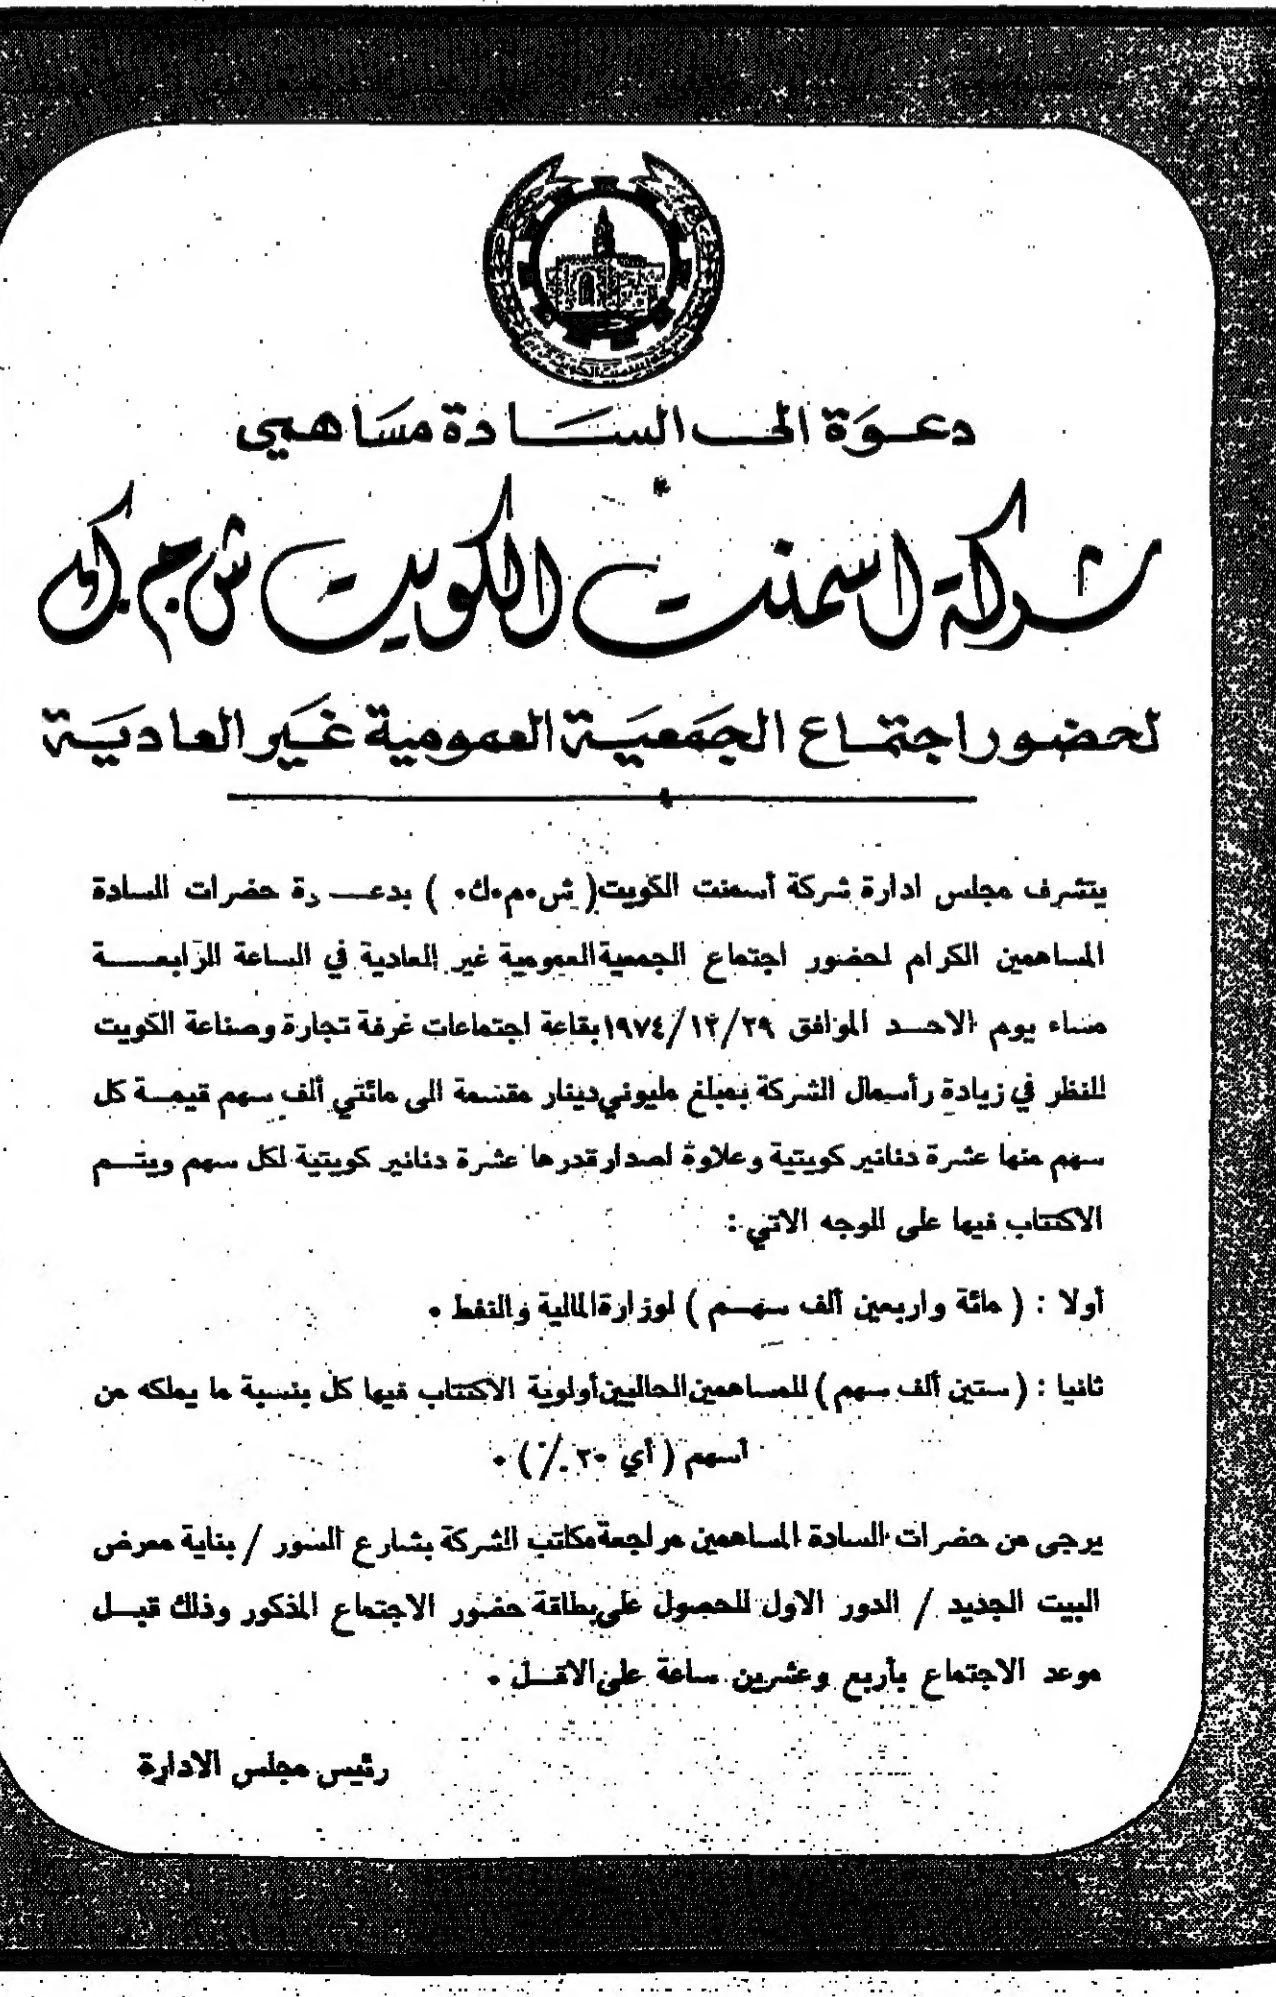 دعوة الى السادة مساهمي
شركة اسمنت الكويت ش.م.ك
لحضور اجتماع الجمعية العمومية غير العادية
يتشرف مجلس ادارة شركة أسمنت الكويت ( ش٠م٠ك٠ ) بدعـــوة حضرات السادة
المساهمين الكرام لحضور اجتماع الجمعية العمومية غير العادية في الساعة الرابعـــة
مساء يوم الاحــد الموافق ١٩٧٤/١٢/٢٩ بقاعة اجتماعات غرفة تجارة وصناعة الكويت
للنظر في زيادة رأسمال الشركة بمبلغ مليوني دينار مقسمة الى مائتي ألف سهم قيمــة كل
سهم منها عشرة دنانير كويتية وعلاوة لصدار قدرها عشرة دنانير كويتية لكل سهم ويتــم
الاكتتاب فيها على الوجه الاتي :
أولا : ( مائة واربعين ألف سهــم ) لوزارة المالية والنفط ٠
ثانيا : ( ستين ألف سهم ) للمساهمين الحاليين أولوية الاكتتاب فيها كل بنسبة ما يملكه من
أسهم ( أي ٣٠ ٪ ) ٠
يرجى من حضرات السادة المساهمين مراجعة مكاتب الشركة بشارع السور / بناية معرض
البيت الجديد / الدور الاول للحصول على بطاقة حضور الاجتماع المذكور وذلك قبــل
موعد الاجتماع بأربع وعشرين ساعة على الاقــل ٠
رئيس مجلس الادارة